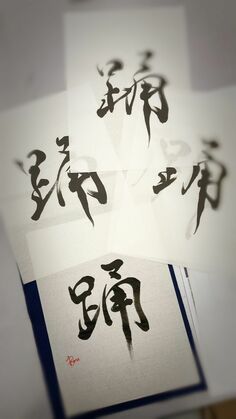 踊
踊 踊
踊